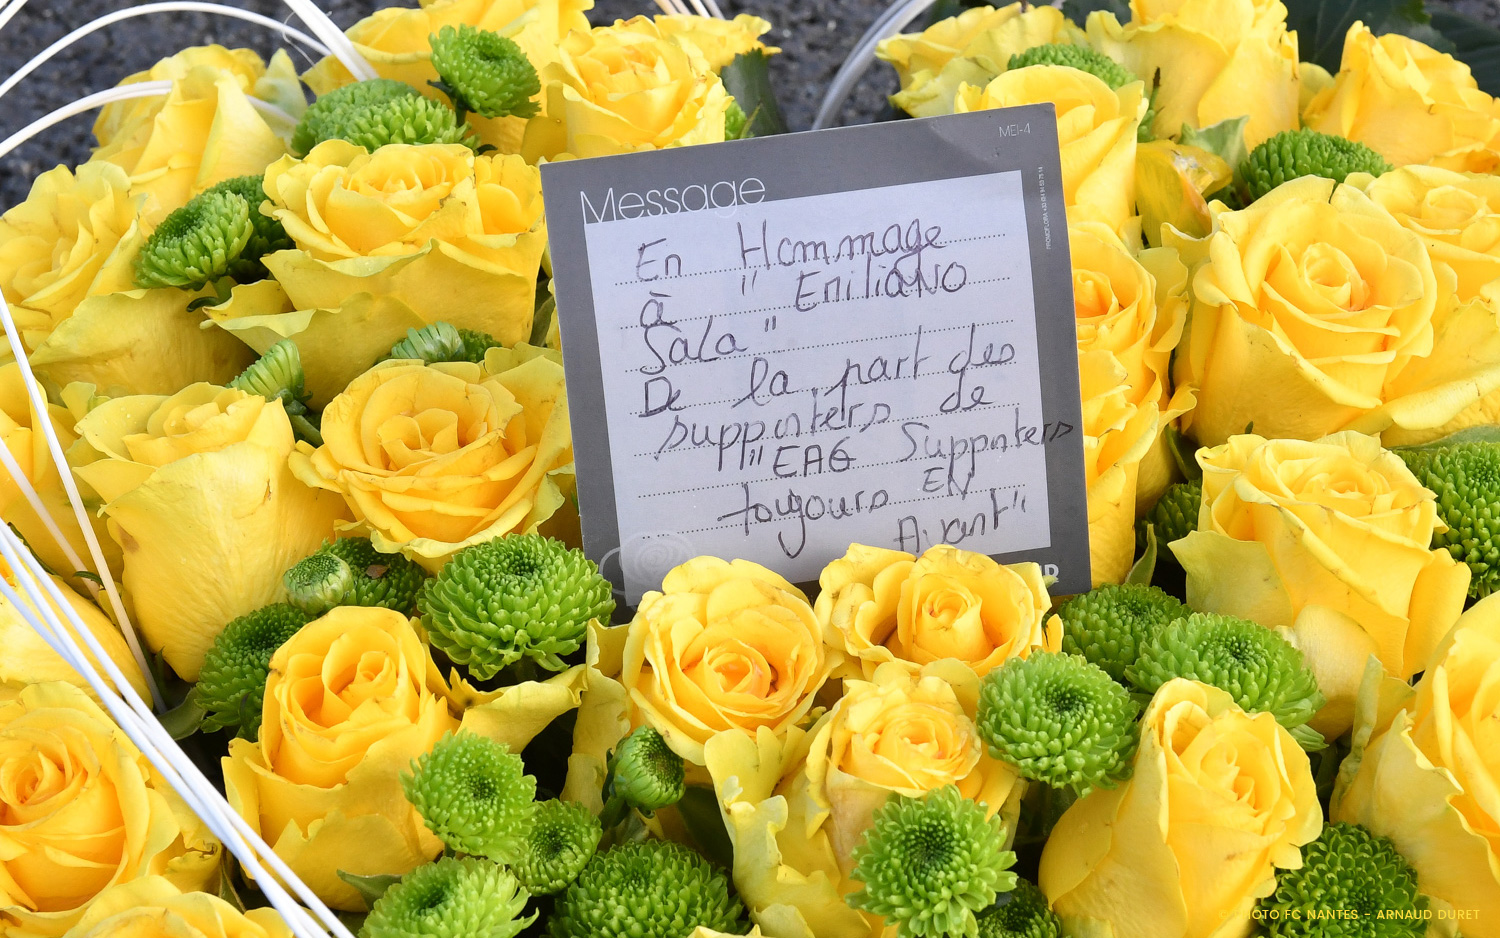 MEI-4
Message
En Hommage
à " EmiliaNO
Sala"
De la part des
supporters de
l'"EAG Supporters
toujours EN
Avant"
PHOTO FC NANTES - ARNAUD DURET